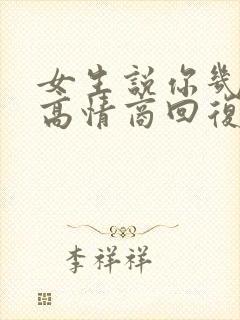 女生說你幾
高情商回復
李祥祥